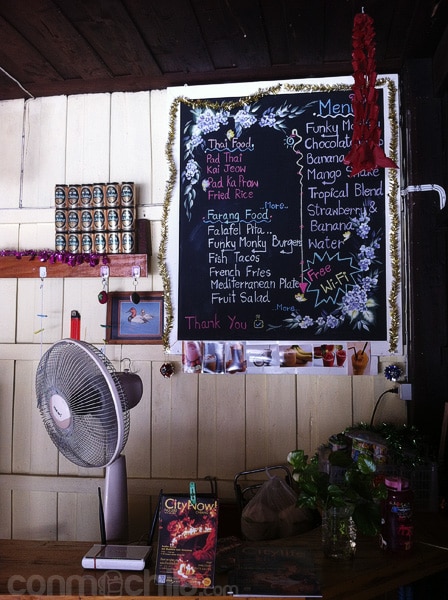 Thai Food.
Pad Thai
Kai Jeow
Pad Ka Praw
Fried Rice
More..
Farang Food.
Falafel Pita..
Funky Monky Burger
Fish Tacos
French Fries
Mediterranean Plate
Fruit Salad
..More..
Thank You
Menu
Funky
Chocola
Banana
Mango Shake
Tropical Blend
Strawberry &
Banana
Water
Free
Wi-Fi
CityNow!
conmochila.com